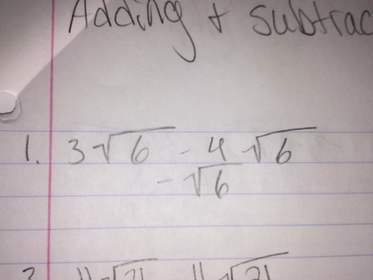 Adding + subtrac
1. 3√6 - 4√6
-√6